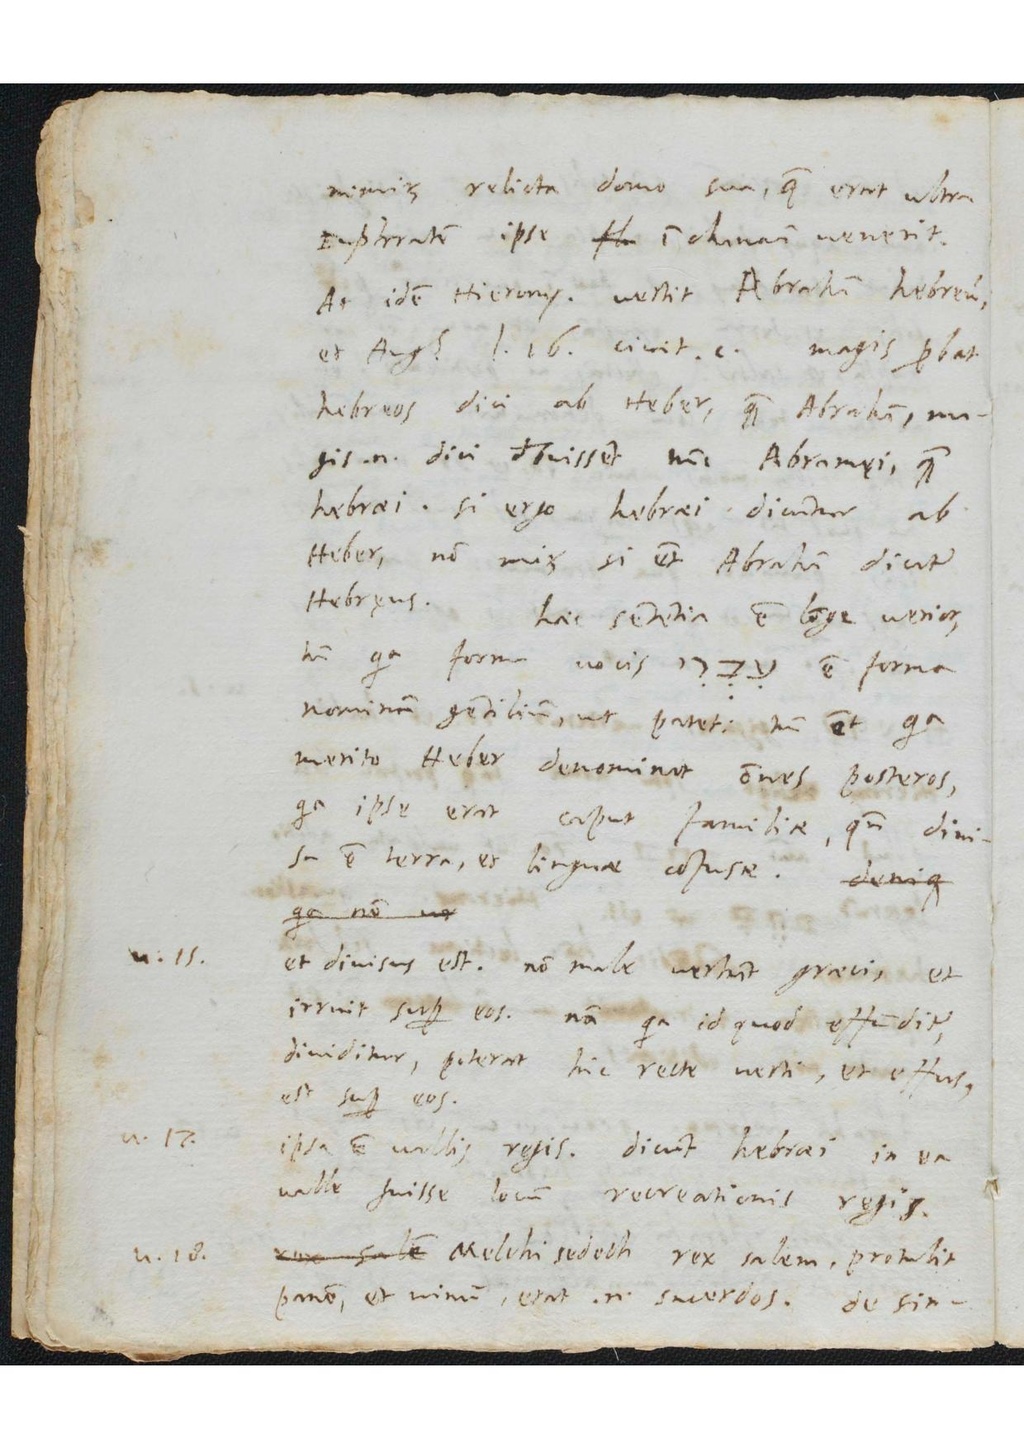 nimirũ relicta domo sua, q̃ erat ultra
Euphratẽ ipse ĩ chanaã uenerit.
At idẽ Hierony. uertit Abrahã hebreũ,
et Aug˜ l. 16. ciuit. c. magis ꝓbat
hebreos dici ab Heber, q̃ Abrahã, ma-
gis .n. dici dbuisset nũc Abramęi, q̃
hebræi. si ergo hebræi dicũtur ab
Heber, nõ mirũ si ẽt Abrahã dicat˜
Hebręus. hæc sẽtẽtia ẽ lõge uerior,
tũ qa forma uocis עִבְרִי ẽ forma
nominũ gẽtiliũ, ut patet: tũ ẽt qa
merito Heber denominat õnes posteros,
qa ipse erat caput familiæ, qñ diui-
sa ẽ terra, et linguæ cõfusæ. deniq
qa nõ ue
u. 15. et diuisus est. nõ male uertũt græci, et
irruit suꝑ eos. nã qa id quod effũdit˜,
diuiditur, poterat hic recte uerti, et effus,
est suꝑ eos.
u. 17. ipsa ẽ uallis regis. dicũt hebræi in ea
ualle fuisse locũ recreationis regis.
u. 18. rex salẽ Melchisedech rex salem, protulit
panẽ, et uinũ, erat .n. sacerdos. de sin-